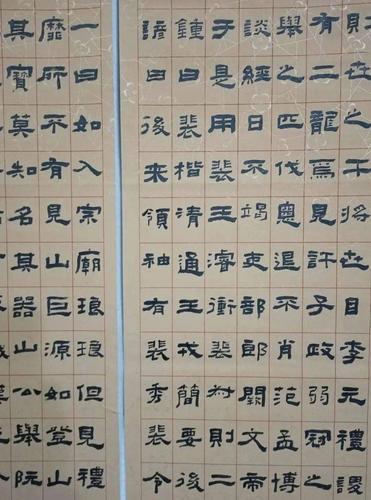 則世之干將世目李元禮謖
有二龍焉見許子政弱冠之
舉之匹伐惡退不肖范孟博
談經日不竭吏部郎闕文帝
于是用裴王濬衝裴為則二
鍾曰裴楷清通王戎簡要後
諺曰後來領袖有裴秀裴令
一曰如入宗廟琅琅但見禮
靡所不有見山巨源如登山
其寶莫知名其器山公舉阮